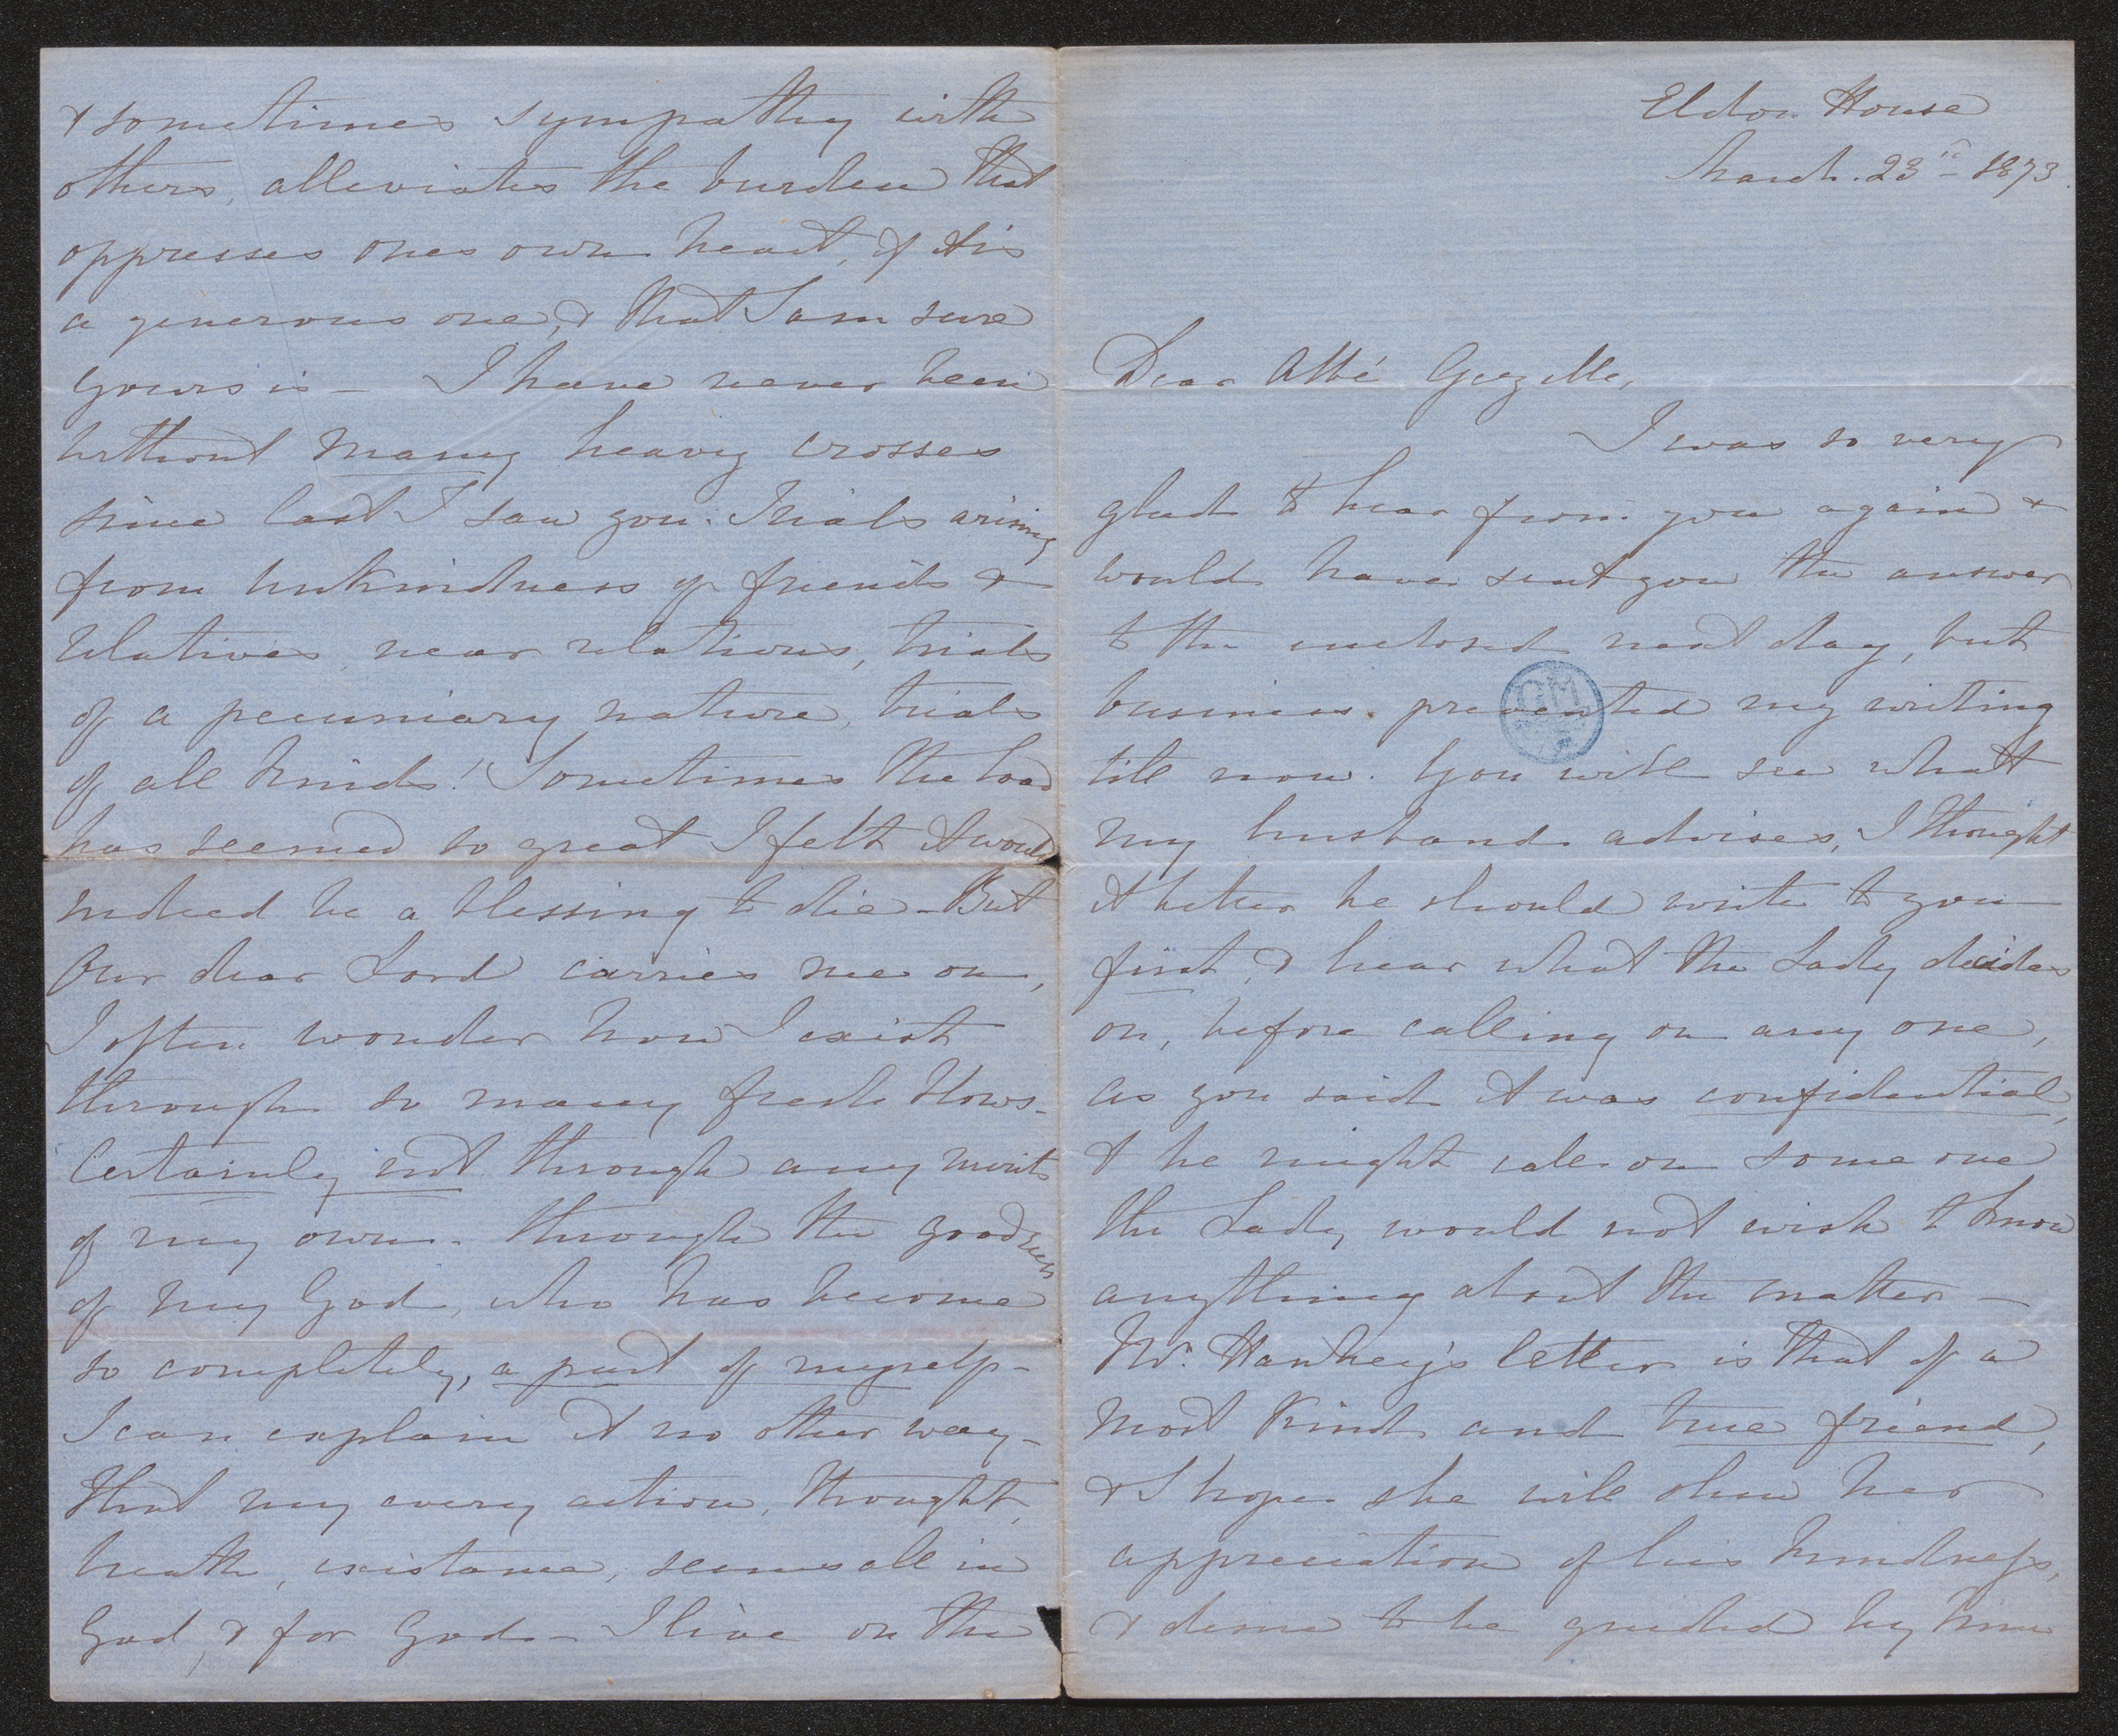 Eldon House
March. 23rd 1873.
Dear Abbé Gezelle,
I was so very
glad to hear from you again &
would have sent you the answer
to the enclosed next day, but
business prevented my writing
till now. You will see what
my husband advises, I thought
it better he should write to you
first, & hear what the Lady decides
on, before calling on any one,
as you said it was confidential,
& he might call on some one
the Lady would not wish to know
anything about the matter –
Mr. Hankey's letter is that of a
most kind and true friend,
& I hope she will show her
appreciation of his kindness,
& desire to be guided by him
& sometimes sympathy with
others, alleviates the burden that
oppresses ones own heart, if 'tis
a generous one, & that I am sure
yours is – I have never been
without many heavy crosses
since last I saw you. Trials arising
from unkindness of friends &
relatives, near relations, trials
of a pecuniary nature, trials
of all kinds! Sometimes the load
has seemed so great I felt it would
indeed be a blessing to die – But
Our dear Lord carries me on,
I often wonder how I exist
through so many fresh blows –
Certainly not through any merits
of my own – through the goodness
of my God, who has become
so completely, a part of myself –
I can explain it no other way –
that my every action, thought,
breath, existance, seems all in
God, & for God – I live on the